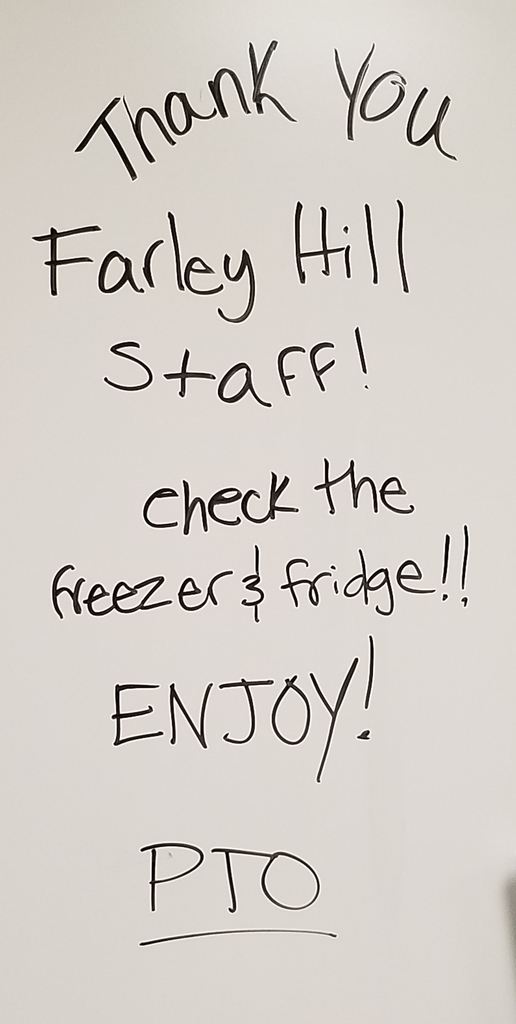 Thank You
Farley Hill
Staff!
check the
freezer & fridge!!
ENJOY!
PTO